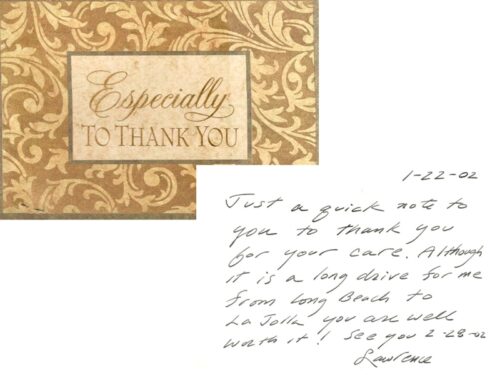 Especially
TO THANK YOU
1-22-02
Just a quick note to
you to thank you
for your care. Although
it is a long drive for me
from Long Beach to
La Jolla you are well
worth it! See you 2-28-02
Lawrence